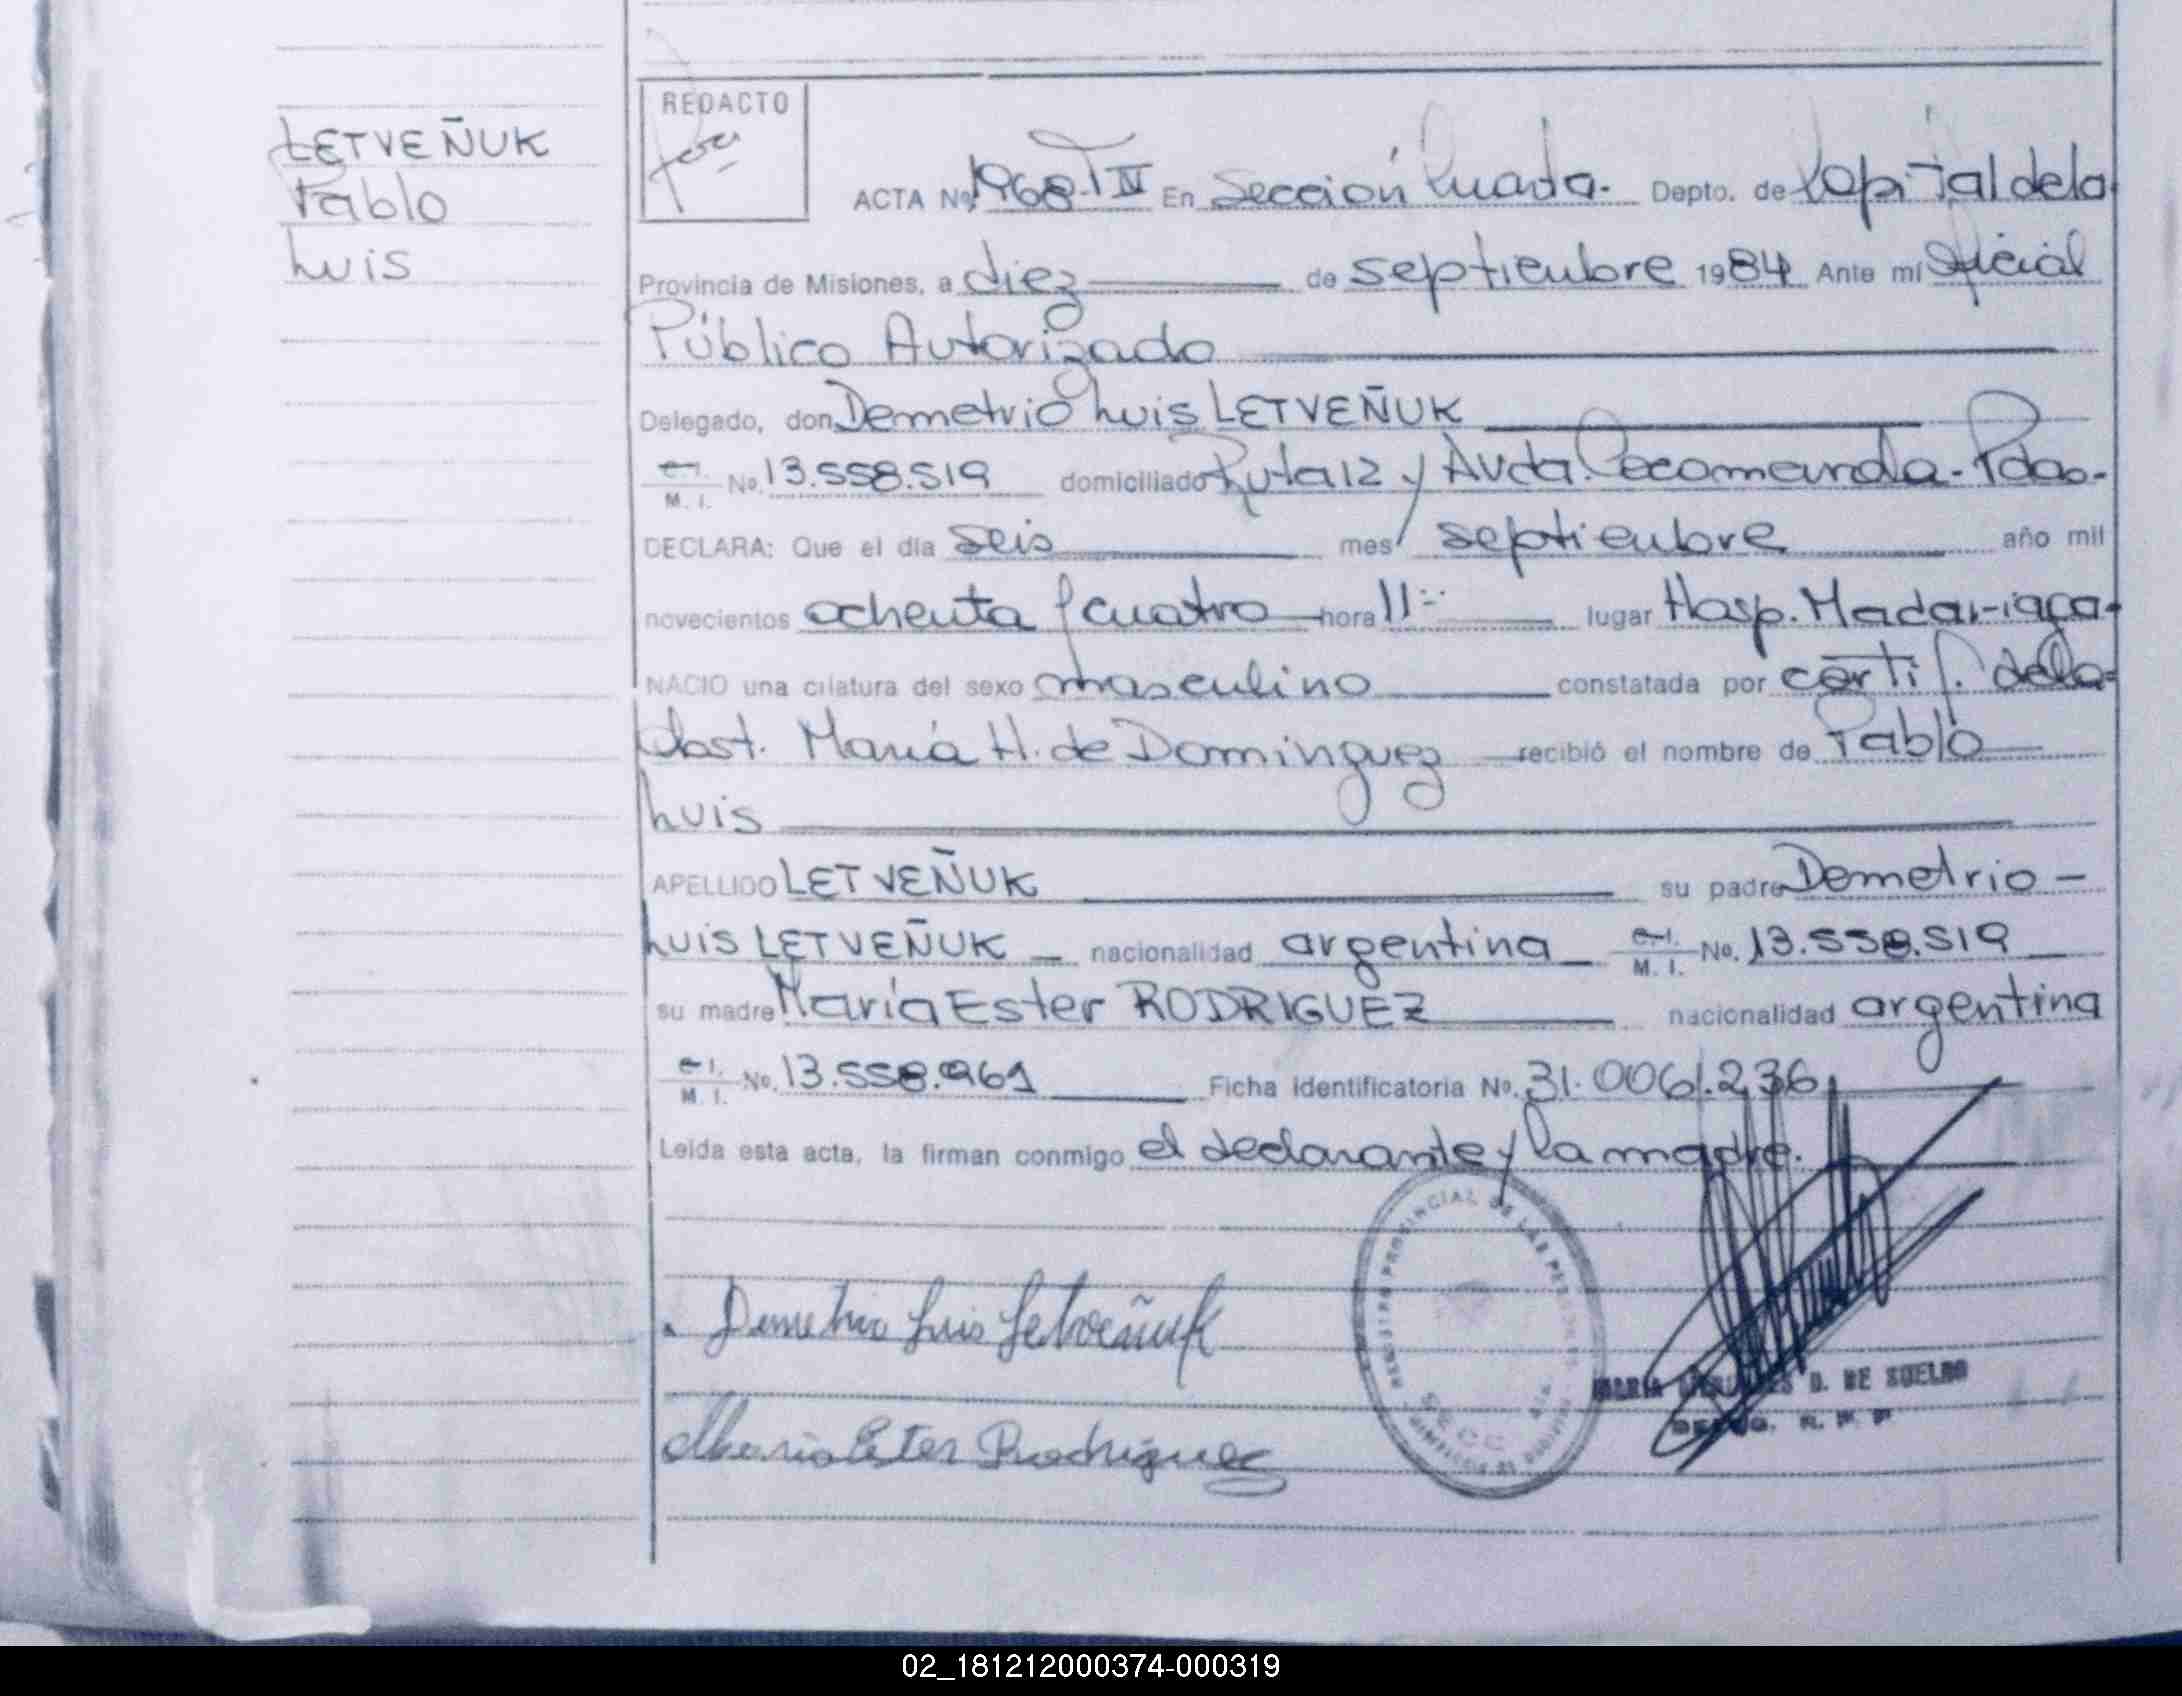 LETVEÑUK
Pablo
Luis
REDACTO
ACTA No 1968 T IV En Sección Cuarta. Depto. de Capital de la
Provincia de Misiones, a diez de septiembre 1984 Ante mí Oficial
Público Autorizado
Delegado, don Demetrio Luis LETVEÑUK
M. I. No. 13.558.519 domiciliado Ruta 12 y Avda. Tacomanda - Pdas.
DECLARA: Que el día seis mes septiembre año mil
novecientos ochenta y cuatro hora 11 lugar Hosp. Madariaga
NACIO una criatura del sexo masculino constatada por certif. de la
Obst. María H. de Dominguez recibió el nombre de Pablo
Luis
APELLIDO LETVEÑUK su padre Demetrio
Luis LETVEÑUK nacionalidad argentina M. I. No. 13.558.519
su madre María Ester RODRIGUEZ nacionalidad argentina
M. I. No. 13.558.961 Ficha identificatoria No. 31.006.236
Leída esta acta, la firman conmigo el declarante y la madre.
REGISTRO PROVINCIAL DE LAS PERSONAS
Demetrio Luis Letveñuk
MARIA D. DE SUELDO
R. P. P
Maria Ester Rodriguez
02_181212000374-000319